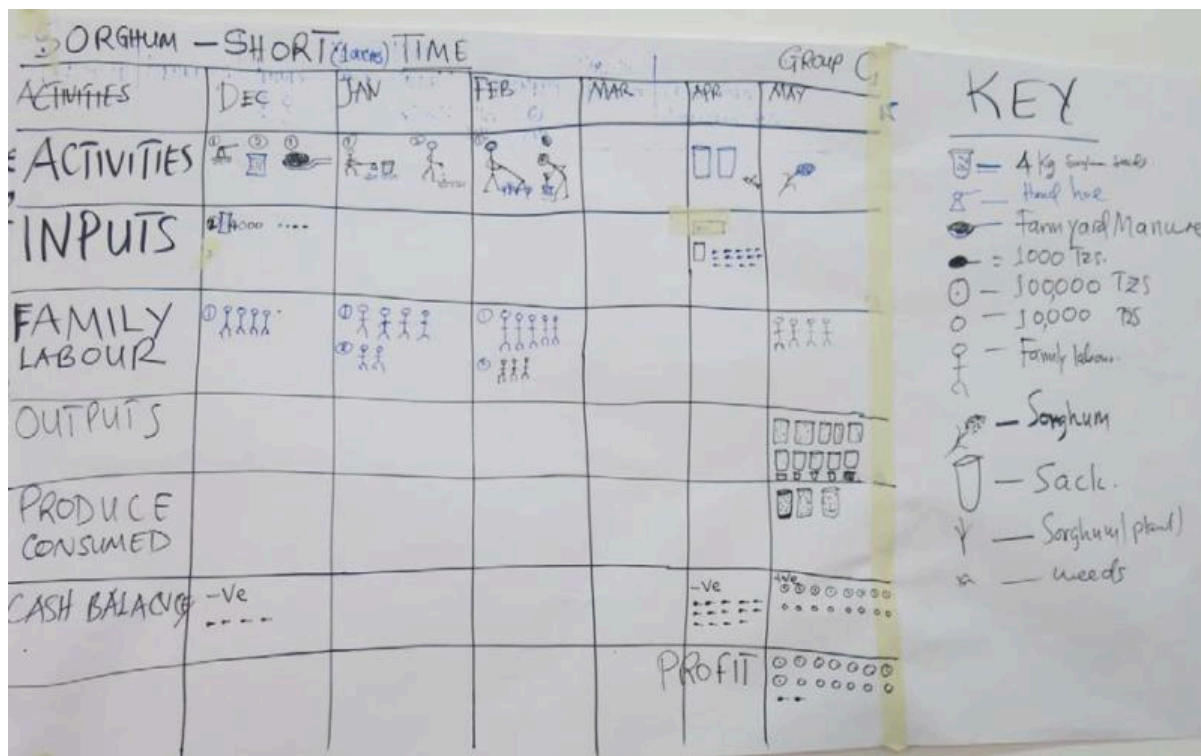 SORGHUM – SHORT (1 acres) TIME
GROUP C
ACTIVITIES DEC JAN FEB MAR APR MAY
ACTIVITIES
INPUTS
4000
FAMILY
LABOUR
OUTPUTS
PRODUCE
CONSUMED
CASH BALANCE
-Ve
-Ve
+ve
PROFIT
KEY
= 4 Kg Sorghum seeds
— Hand hoe
— Farmyard Manure
= 1000 Tzs.
— 100,000 TZS
— 10,000 TZS
— Family labour.
— Sorghum
— Sack.
— Sorghum (plant)
— weeds